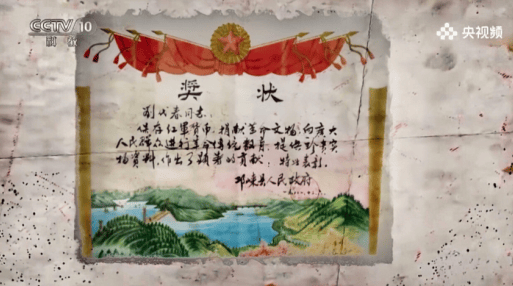 CCTV 10
央视频
奖状
同志:
保存红军货币,捐献革命文物,向广大
人民群众进行革命传统教育,提供珍贵实
物资料,作出了显著的贡献,特注表彰。
邛崃县人民政府